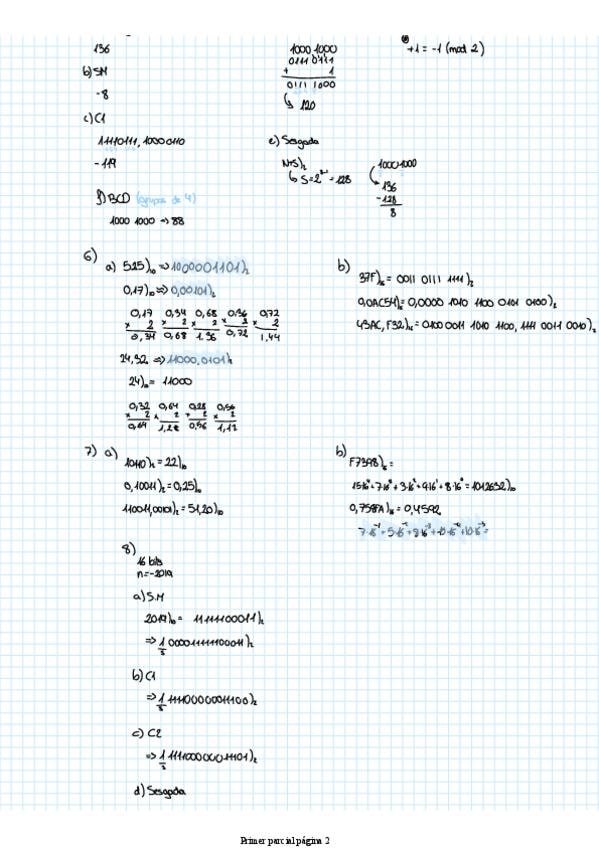 136
b) SM
-8
c) C1
11110111, 10000110
-119
f) BCD (grupos de 4)
1000 1000 => 88
1000 1000
0111 0111
+ 1
0111 1000
↳ 120
+1 = -1 (mod 2)
e) Sesgada
N+S)₂
↳ S=2⁸⁻¹=128
10001000
136
-128
8
6)
a) 525)₁₀ => 1000001101)₂
0,17)₁₀ => 0,00101)₂
0,17 0,34 0,68 0,36 0,72
× 2 × 2 × 2 × 2 × 2
0,34 0,68 1,36 0,72 1,44
24,32 => 11000,0101)₂
24)₁₀ = 11000
0,32 0,64 0,28 0,56
× 2 × 2 × 2 × 2
0,64 1,28 0,56 1,12
b)
37F)₁₆ = 0011 0111 1111)₂
0,0AC54)₁₆ = 0,0000 1010 1100 0101 0100)₂
43AC,F32)₁₆ = 0100 0011 1010 1100, 1111 0011 0010)₂
7) a)
10110)₂ = 22)₁₀
0,10011)₂ = 0,25)₁₀
110011,00101)₂ = 51,20)₁₀
b)
F7398)₁₆ =
15·16⁴+7·16³+3·16²+9·16¹+8·16⁰ = 1012632)₁₀
0,758AA)₁₆ = 0,4592
7·16⁻¹+5·16⁻²+8·16⁻³+10·16⁻⁴+10·16⁻⁵=
8)
16 bits
n=-2019
a) S.M
2019)₁₀ = 11111100011)₂
=> 1 000011111100011)₂
s
b) C1
=> 1 111100000011100)₂
s
c) C2
=> 1 111100000011101)₂
s
d) Sesgada
Primer parcial página 2